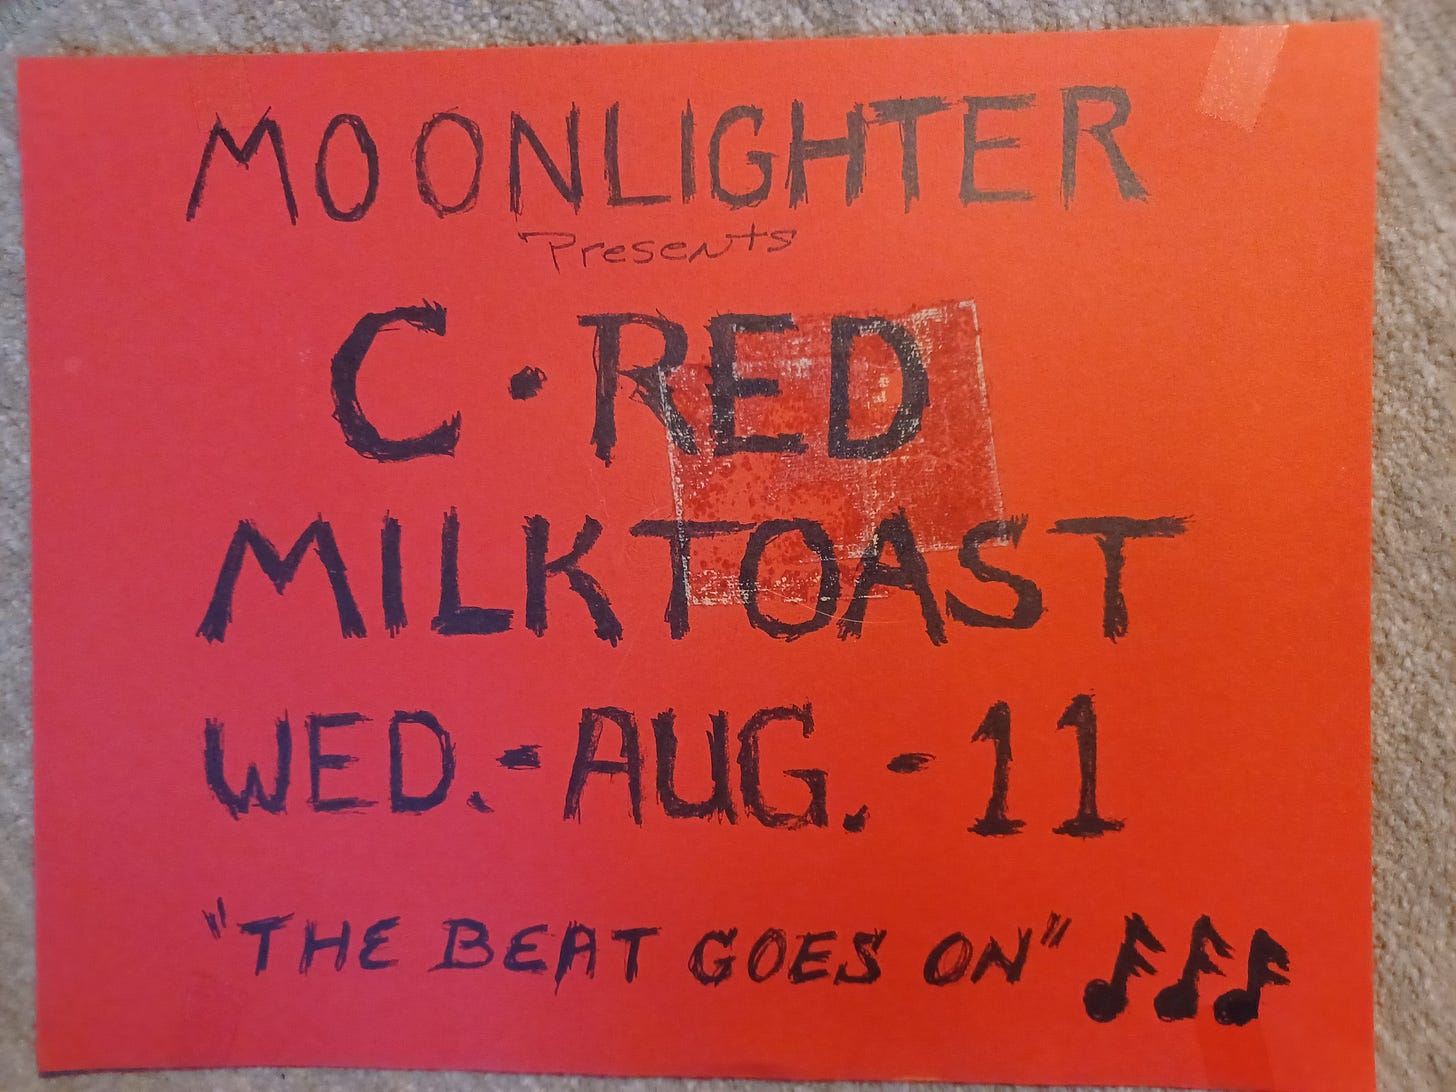 MOONLIGHTER
Presents
C·RED
MILKTOAST
WED.-AUG.-11
"THE BEAT GOES ON"